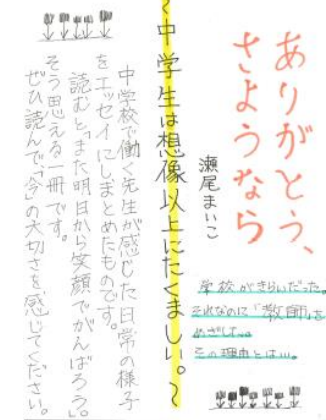 ありがとう、
さようなら
瀬尾まいこ
学校がきらいだった。
それなのに「教師」を
めざした。
その理由とは…。
~中学生は想像以上にたくましい。~
中学校で働く先生が感じた日常の様子
をエッセイにしまとめたものです。
読むと"また明日から笑顔でがんばろう。
そう思える一冊です。
ぜひ読んで「今」の大切さを感じてください。